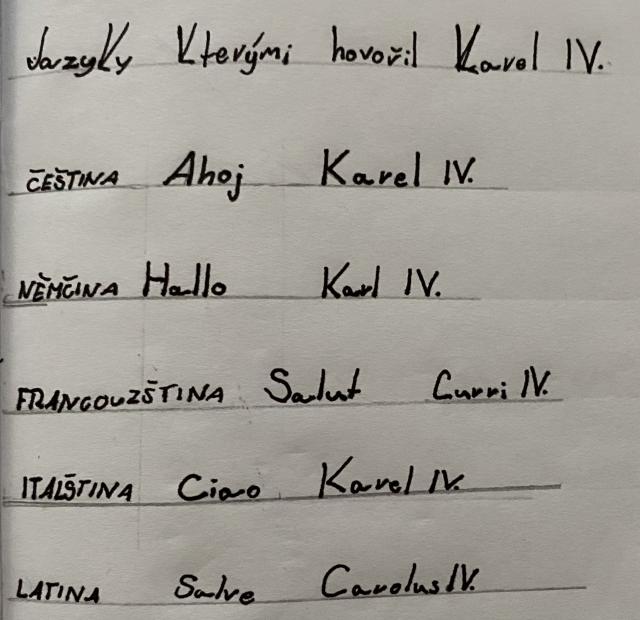 Jazyky Kterými hovořil Karel IV.
ČEŠTINA Ahoj Karel IV.
NĚMČINA Hallo Karl IV.
FRANCOUZŠTINA Salut Curri IV.
ITALŠTINA Ciao Karel IV.
LATINA Salve Carolus IV.